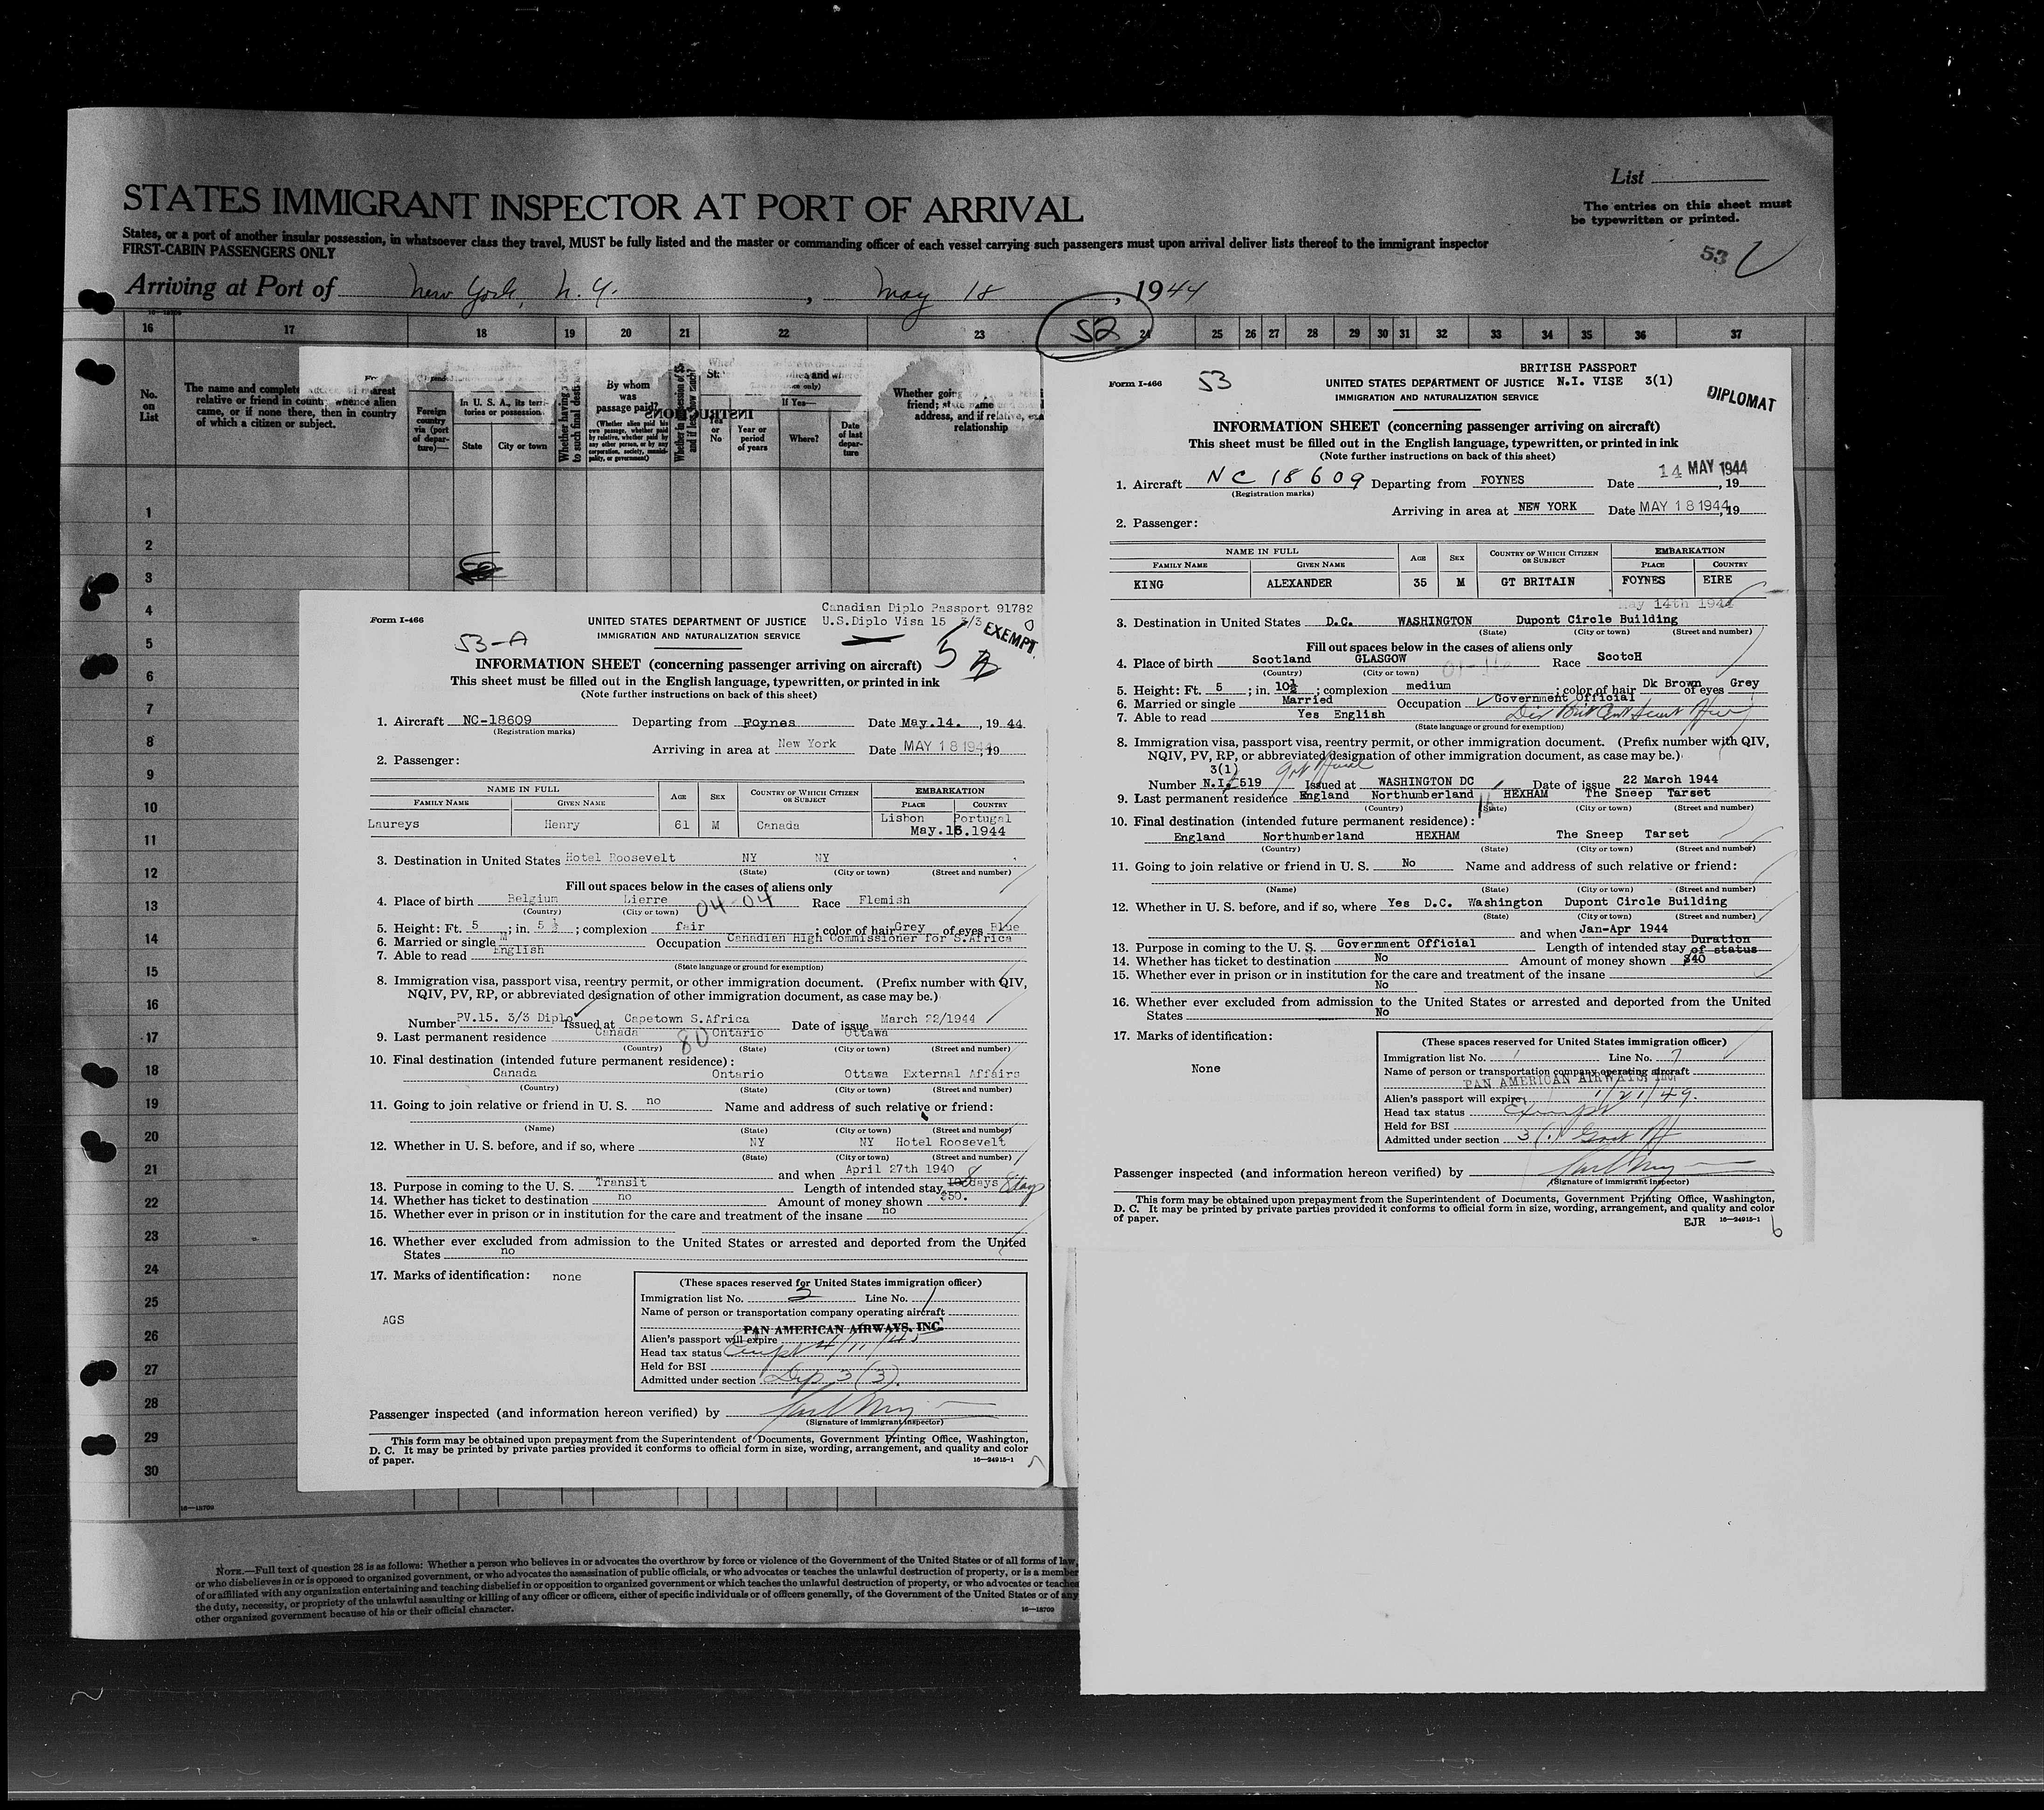 List
STATES IMMIGRANT INSPECTOR AT PORT OF ARRIVAL
The entries on this sheet must
be typewritten or printed.
States, or a port of another insular possession, in whatsoever class they travel, MUST be fully listed and the master or commanding officer of each vessel carrying such passengers must upon arrival deliver lists thereof to the immigrant inspector
FIRST-CABIN PASSENGERS ONLY
53
Arriving at Port of New York, N. Y. , May 18 , 1944
16-18709
16 17 18 19 20 21 22 23 24 25 26 27 28 29 30 31 32 33 34 35 36 37
52
No.
on
List
The name and complete address of nearest
relative or friend in country whence alien
came, or if none there, then in country
of which a citizen or subject.
Foreign
country
via (port
of depar-
ture)—
In U. S. A., its terri-
tories or possession
State
City or town
Whether having
to such final desti
By whom
was
passage paid?
(Whether alien paid his
own passage, whether paid
by relative, whether paid by
any other person, or by any
corporation, society, munici-
pality, or government)
INSTRUCTIONS
If Yes—
Yes
or
No
Year or
period
of years
Where?
Date
of last
depar-
ture
Whether going
friend; state name
address, and if relative,
relationship
1
2
3
4
5
6
7
8
9
10
11
12
13
14
15
16
17
18
19
20
21
22
23
24
25
26
27
28
29
30
16-18709
Canadian Diplo Passport 91782
Form I-466
UNITED STATES DEPARTMENT OF JUSTICE
U.S.Diplo Visa 15 3/3
IMMIGRATION AND NATURALIZATION SERVICE
EXEMPT
53-A
INFORMATION SHEET (concerning passenger arriving on aircraft)
This sheet must be filled out in the English language, typewritten, or printed in ink
(Note further instructions on back of this sheet)
1. Aircraft NC-18609 Departing from Foynes Date May.14. , 19 44
(Registration marks)
Arriving in area at New York Date MAY 18 1944, 19
2. Passenger:
NAME IN FULL
AGE
SEX
COUNTRY OF WHICH CITIZEN
OR SUBJECT
EMBARKATION
FAMILY NAME
GIVEN NAME
PLACE
COUNTRY
Laureys Henry 61 M Canada Lisbon Portugal
May.16.1944
3. Destination in United States Hotel Roosevelt NY NY
(State) (City or town) (Street and number)
Fill out spaces below in the cases of aliens only
4. Place of birth Belgium Lierre 04-04 Race Flemish
(Country) (City or town)
5. Height: Ft. 5 ; in. 5½ ; complexion fair ; color of hair Grey of eyes Blue
6. Married or single M Occupation Canadian High Commissioner for S.Africa
7. Able to read English
(State language or ground for exemption)
8. Immigration visa, passport visa, reentry permit, or other immigration document. (Prefix number with QIV,
NQIV, PV, RP, or abbreviated designation of other immigration document, as case may be.)
Number PV.15. 3/3 Diplo Issued at Capetown S.Africa Date of issue March 22/1944
9. Last permanent residence Canada 80 Ontario Ottawa
(Country) (State) (City or town) (Street and number)
10. Final destination (intended future permanent residence):
Canada Ontario Ottawa External Affairs
(Country) (State) (City or town) (Street and number)
11. Going to join relative or friend in U. S. no Name and address of such relative or friend:
(Name) (State) (City or town) (Street and number)
12. Whether in U. S. before, and if so, where NY NY Hotel Roosevelt
(State) (City or town) (Street and number)
and when April 27th 1940
13. Purpose in coming to the U. S. Transit Length of intended stay days
14. Whether has ticket to destination no Amount of money shown $50.
15. Whether ever in prison or in institution for the care and treatment of the insane no
16. Whether ever excluded from admission to the United States or arrested and deported from the United
States no
17. Marks of identification: none
(These spaces reserved for United States immigration officer)
Immigration list No. 3 Line No. 1
Name of person or transportation company operating aircraft
PAN AMERICAN AIRWAYS, INC.
Alien's passport will expire 4/11/45
Head tax status Exempt
Held for BSI
Admitted under section Dip 3(3).
AGS
Passenger inspected (and information hereon verified) by
(Signature of immigrant inspector)
This form may be obtained upon prepayment from the Superintendent of Documents, Government Printing Office, Washington,
D. C. It may be printed by private parties provided it conforms to official form in size, wording, arrangement, and quality and color
of paper.
16-24915-1
BRITISH PASSPORT
Form I-466
53
UNITED STATES DEPARTMENT OF JUSTICE N.I. VISE 3(1)
IMMIGRATION AND NATURALIZATION SERVICE
DIPLOMAT
INFORMATION SHEET (concerning passenger arriving on aircraft)
This sheet must be filled out in the English language, typewritten, or printed in ink
(Note further instructions on back of this sheet)
1. Aircraft NC 18609 Departing from FOYNES Date 14 MAY 1944, 19
(Registration marks)
Arriving in area at NEW YORK Date MAY 18 1944, 19
2. Passenger:
NAME IN FULL
AGE
SEX
COUNTRY OF WHICH CITIZEN
OR SUBJECT
EMBARKATION
FAMILY NAME
GIVEN NAME
PLACE
COUNTRY
KING ALEXANDER 35 M GT BRITAIN FOYNES EIRE
May 14th 1944
3. Destination in United States D.C. WASHINGTON Dupont Circle Building
(State) (City or town) (Street and number)
Fill out spaces below in the cases of aliens only
4. Place of birth Scotland GLASGOW Race ScotcH
(Country) (City or town)
5. Height: Ft. 5 ; in. 10½ ; complexion medium ; color of hair Dk Brown of eyes Grey
6. Married or single Married Occupation Government Official
7. Able to read Yes English
(State language or ground for exemption)
8. Immigration visa, passport visa, reentry permit, or other immigration document. (Prefix number with QIV,
NQIV, PV, RP, or abbreviated designation of other immigration document, as case may be.)
3(1)
Number N.I. 519 Issued at WASHINGTON DC Date of issue 22 March 1944
9. Last permanent residence England Northumberland HEXHAM The Sneep Tarset
(Country) (State) (City or town) (Street and number)
10. Final destination (intended future permanent residence):
England Northumberland HEXHAM The Sneep Tarset
(Country) (State) (City or town) (Street and number)
11. Going to join relative or friend in U. S. No Name and address of such relative or friend:
(Name) (State) (City or town) (Street and number)
12. Whether in U. S. before, and if so, where Yes D.C. Washington Dupont Circle Building
(State) (City or town) (Street and number)
and when Jan-Apr 1944
13. Purpose in coming to the U. S. Government Official Length of intended stay Duration of status
14. Whether has ticket to destination No Amount of money shown $40
15. Whether ever in prison or in institution for the care and treatment of the insane
No
16. Whether ever excluded from admission to the United States or arrested and deported from the United
States No
17. Marks of identification:
None
(These spaces reserved for United States immigration officer)
Immigration list No. 1 Line No. 7
Name of person or transportation company operating aircraft
PAN AMERICAN AIRWAYS, INC.
Alien's passport will expire 1/21/49.
Head tax status Exempt
Held for BSI
Admitted under section 3(1) Govt Off
Passenger inspected (and information hereon verified) by
(Signature of immigrant inspector)
This form may be obtained upon prepayment from the Superintendent of Documents, Government Printing Office, Washington,
D. C. It may be printed by private parties provided it conforms to official form in size, wording, arrangement, and quality and color
of paper.
EJR 16-24915-1
6
NOTE.—Full text of question 28 is as follows: Whether a person who believes in or advocates the overthrow by force or violence of the Government of the United States or of all forms of law,
or who disbelieves in or is opposed to organized government, or who advocates the assassination of public officials, or who advocates or teaches the unlawful destruction of property, or is a member
of or affiliated with any organization entertaining and teaching disbelief in or opposition to organized government or which teaches the unlawful destruction of property, or who advocates or teaches
the duty, necessity, or propriety of the unlawful assaulting or killing of any officer or officers, either of specific individuals or of officers generally, of the Government of the United States or of any
other organized government because of his or their official character.
16-18709